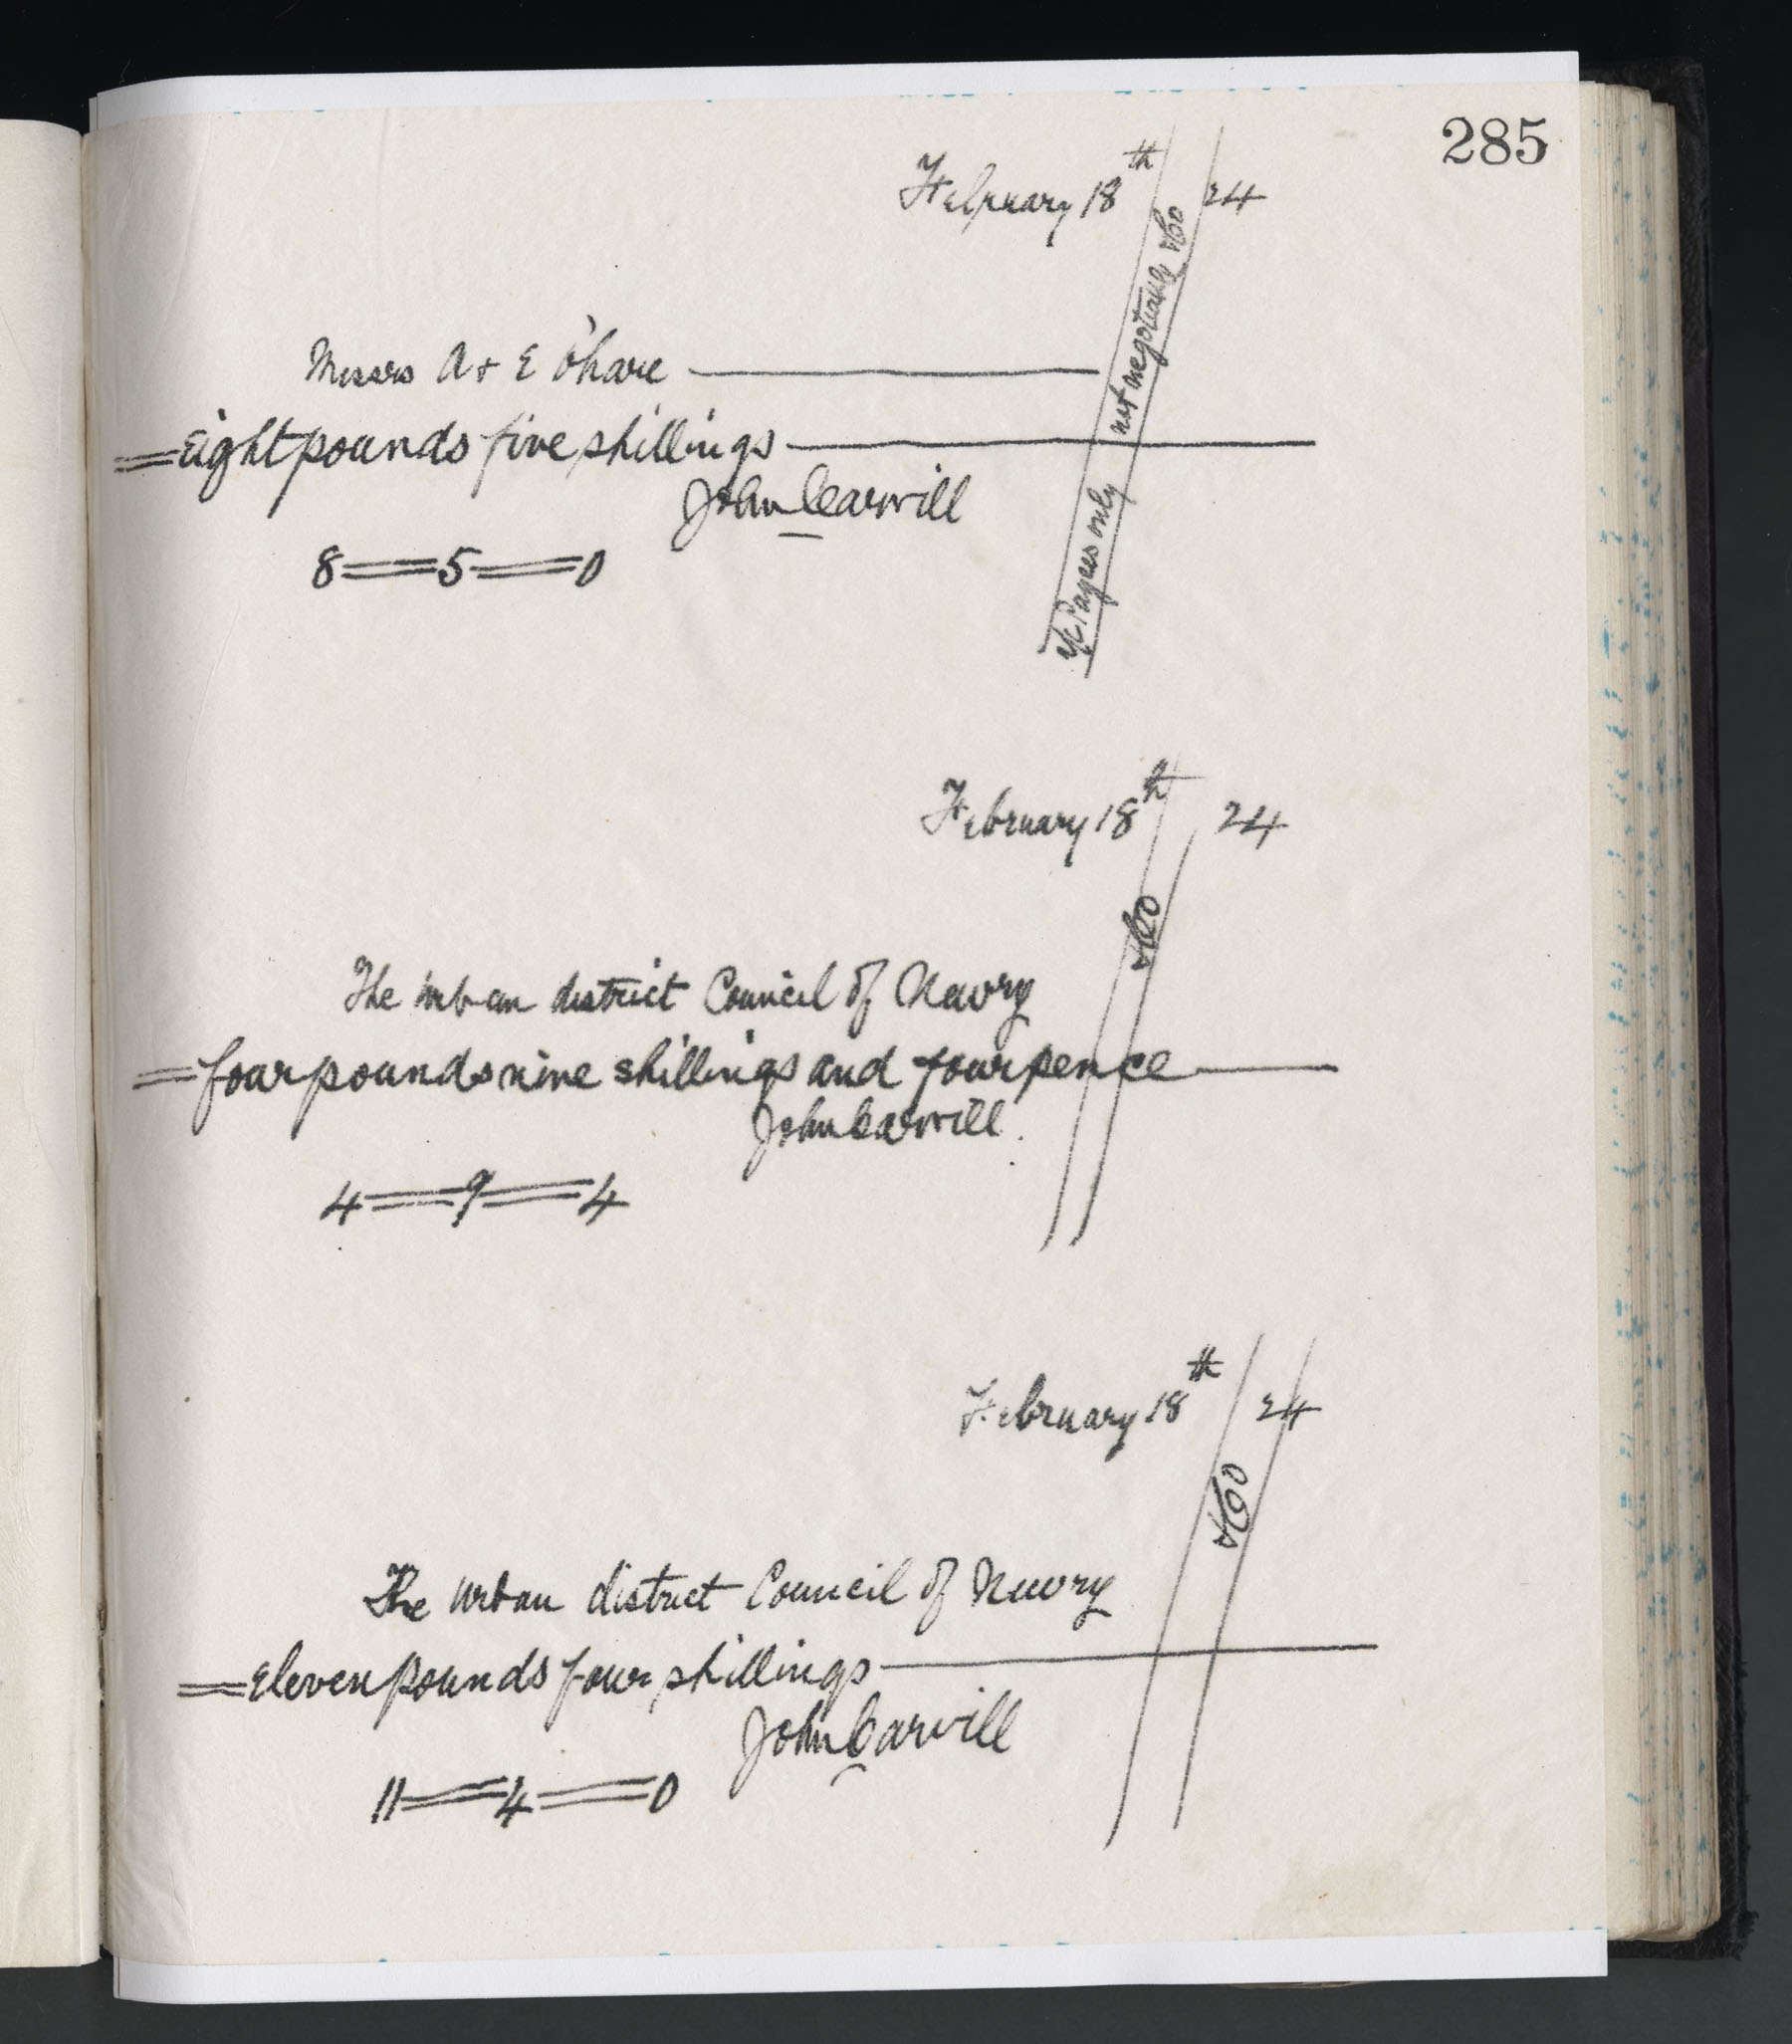 285
February 18th 24
Messrs A + E O'hare
Eight pounds five shillings
John Carvill
8 = 5 = 0
not negotiable &Co
a/c Payees only
February 18th 24
&Co
The urban district Council of Newry
four pounds nine shillings and fourpence
John Carvill
4 = 9 = 4
February 18th 24
&Co
The Urban district Council of Newry
Eleven pounds four shillings
John Carvill
11 = 4 = 0